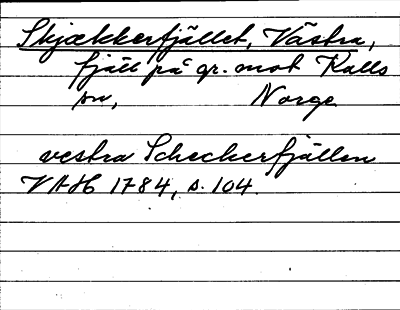 Skjækkerfjället, Västra,
fjäll på gr. mot Kalls
sn, Norge
vestra Scheckerfjällen
VAH 1784, s. 104.